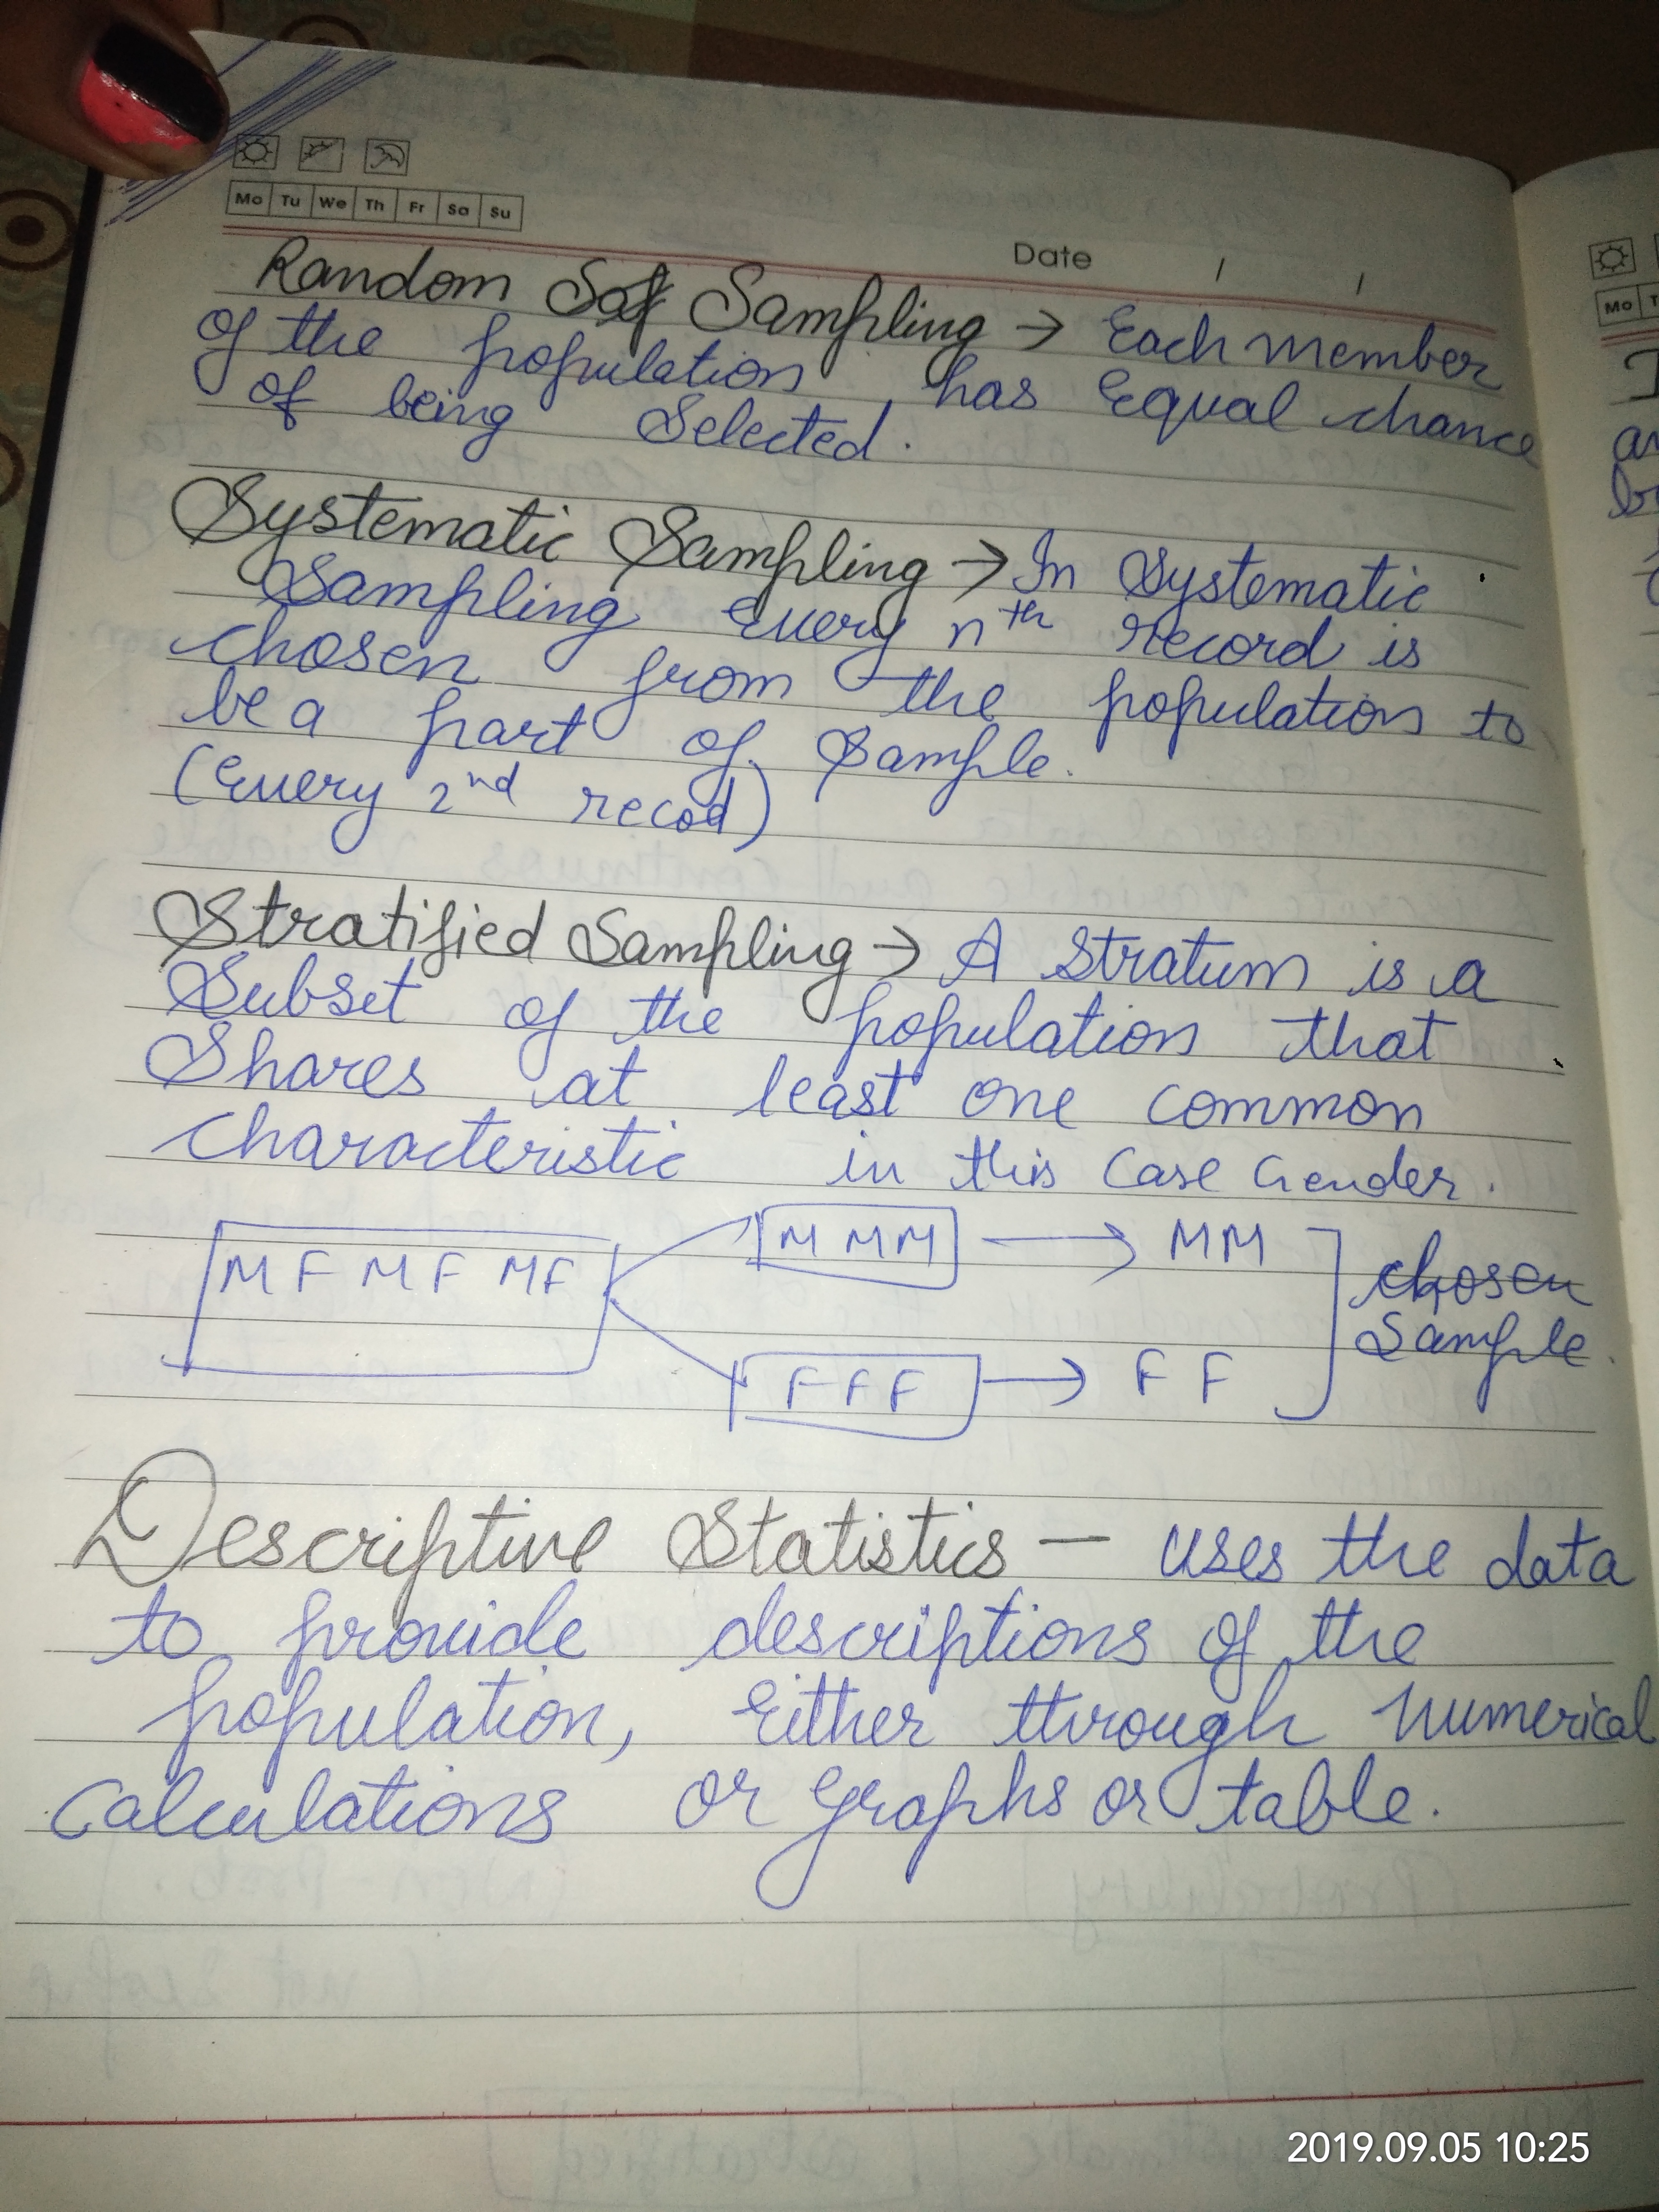 Mo Tu We Th Fr Sa Su
Date / /
Random Sampling → Each member
of the population has Equal chance
of being Selected.
Systematic Sampling → In Systematic
Sampling Every nth record is
chosen from the population to
be a part of Sample.
(Every 2nd recod)
Stratified Sampling → A Stratum is a
Subset of the population that
Shares at least one common
characteristic in this Case Gender.
M F M F M F
M M M → M M
chosen
Sample.
F F F → F F
Descriptive Statistics — uses the data
to provide descriptions of the
population, Either through numerical
calculations or graphs or table.
Mo
2019.09.05 10:25